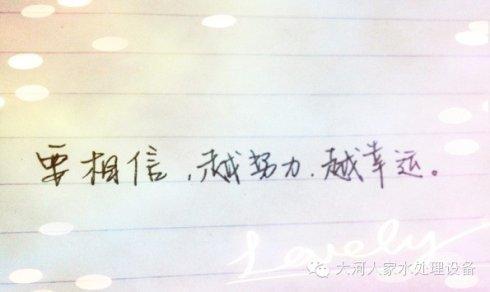 要相信,越努力.越幸运。
Lovely
大河人家水处理设备